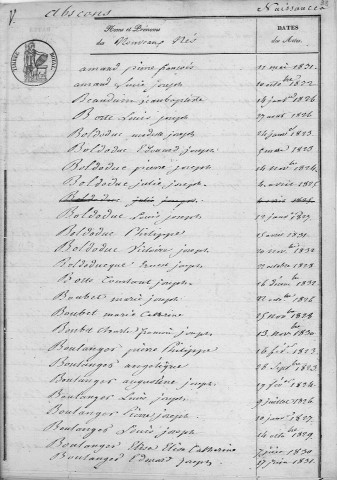 Abscons Naissances
Noms et Prénoms DATES
des Nouveaux Nés des Actes.
amand pierre françois 11 mai 1821.
amand Louis joseph 1822
Beaudum jeanbaptiste 14 janv 1826
Botte Louis joseph 27 aout 1826
Boldoduc joseph 24 janv 1823
Boldoduc Edouard joseph mai 1823
Boldoduc pierre joseph 14 nbre 1824
Boldoduc julie joseph 4 avril 1825
Boldoduc julie joseph 4 avril 1825
Boldoduc Louis joseph 12 janv 1829
Boldoduc Philippe 1831
Boldoduc Victoire joseph 1832
Boldoducque Ernest joseph octobre 1828
Botte Constant joseph 16 Xbre 1832
Boubet marie joseph 1826
Boubet marie Catherine 25 nov 1828
Boubet Charle françois joseph 13 nov 1830
Boulanger pierre Philippe 16 fév 1823
Boulanger angélique 26 Septbre 1823
Boulanger augustine joseph 19 fév 1824
Boulanger Louis joseph 9 juillet 1826
Boulanger Pierre joseph 10 janv 1827
Boulanger joseph 14 1829
Boulanger Elisa Catherine 1830
Boulanger Edouard joseph 17 juin 1831